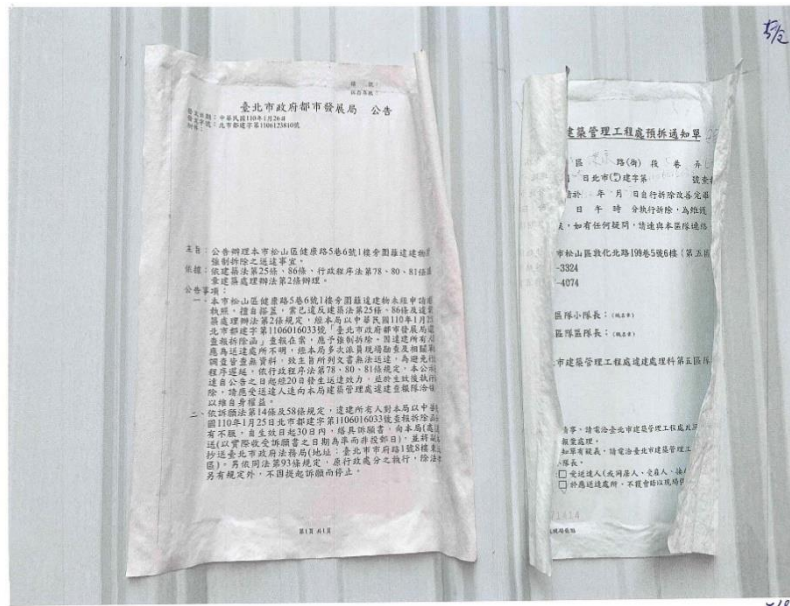 5/2
檔　號：
保存年限：
臺北市政府都市發展局　公告
發文日期：中華民國110年1月26日
發文字號：北市都建字第1106123610號
附件：
主旨：公告辦理本市松山區健康路5巷6號1樓旁圍籬違建物
強制拆除之送達事宜。
依據：依建築法第25條、86條、行政程序法第78、80、81條
章建築處理辦法第2條辦理。
公告事項：
一、本市松山區健康路5巷6號1樓旁圍籬違建物未經申請
執照，擅自搭蓋，業已違反建築法第25條、86條及違
築處理辦法第2條規定，經本局以中華民國110年1月25
北市都建字第1106016033號「臺北市政府都市發展局
查報拆除函」查報在案，應予強制拆除。因違建所有
應為送達處所不明，經本局多次派員現場勘查及相關
調查皆查無資料，致主旨所列文書無法送達，為避免行
程序遲延，依行政程序法第78、80、81條規定，本公
達自公告之日起經20日發生送達效力，並於生效後執
除，請應受送達人逕向本局建築管理處違建查報隊洽
以維自身權益。
二、依訴願法第14條及58條規定，違建所有人對本局以中華
國110年1月25日北市都建字第1106016033號查報拆除函
有不服，自生效日起30日內，繕具訴願書，向本局(處
送(以實際收受訴願書之日期為準而非投郵日)，並將
抄送臺北市政府法務局(地址：臺北市市府路1號8樓東
區)。另依同法第93條規定，原行政處分之執行，除法
另有規定外，不因提起訴願而停止。
第1頁 共1頁
建築管理工程處預拆通知單
區　路(街)　段　巷　弄
日北市(　)建字第　號查
於　年　月　日自行拆除改善完
日　午　時　分執行拆除，為維護
，如有任何疑問，請速與本區隊連絡
市松山區敦化北路199巷5號6樓(第五
-3324
-4074
區隊小隊長：(職名章)
區隊區隊長：(職名章)
市建築管理工程處違建處理科第五區隊
情事，請電洽臺北市建築管理工程處
報查處理。
知單有疑義，請電洽臺北市建築管理工
小隊長。
□ 受送達人(或同居人、受雇人、
□ 於應送達處所，不獲會晤